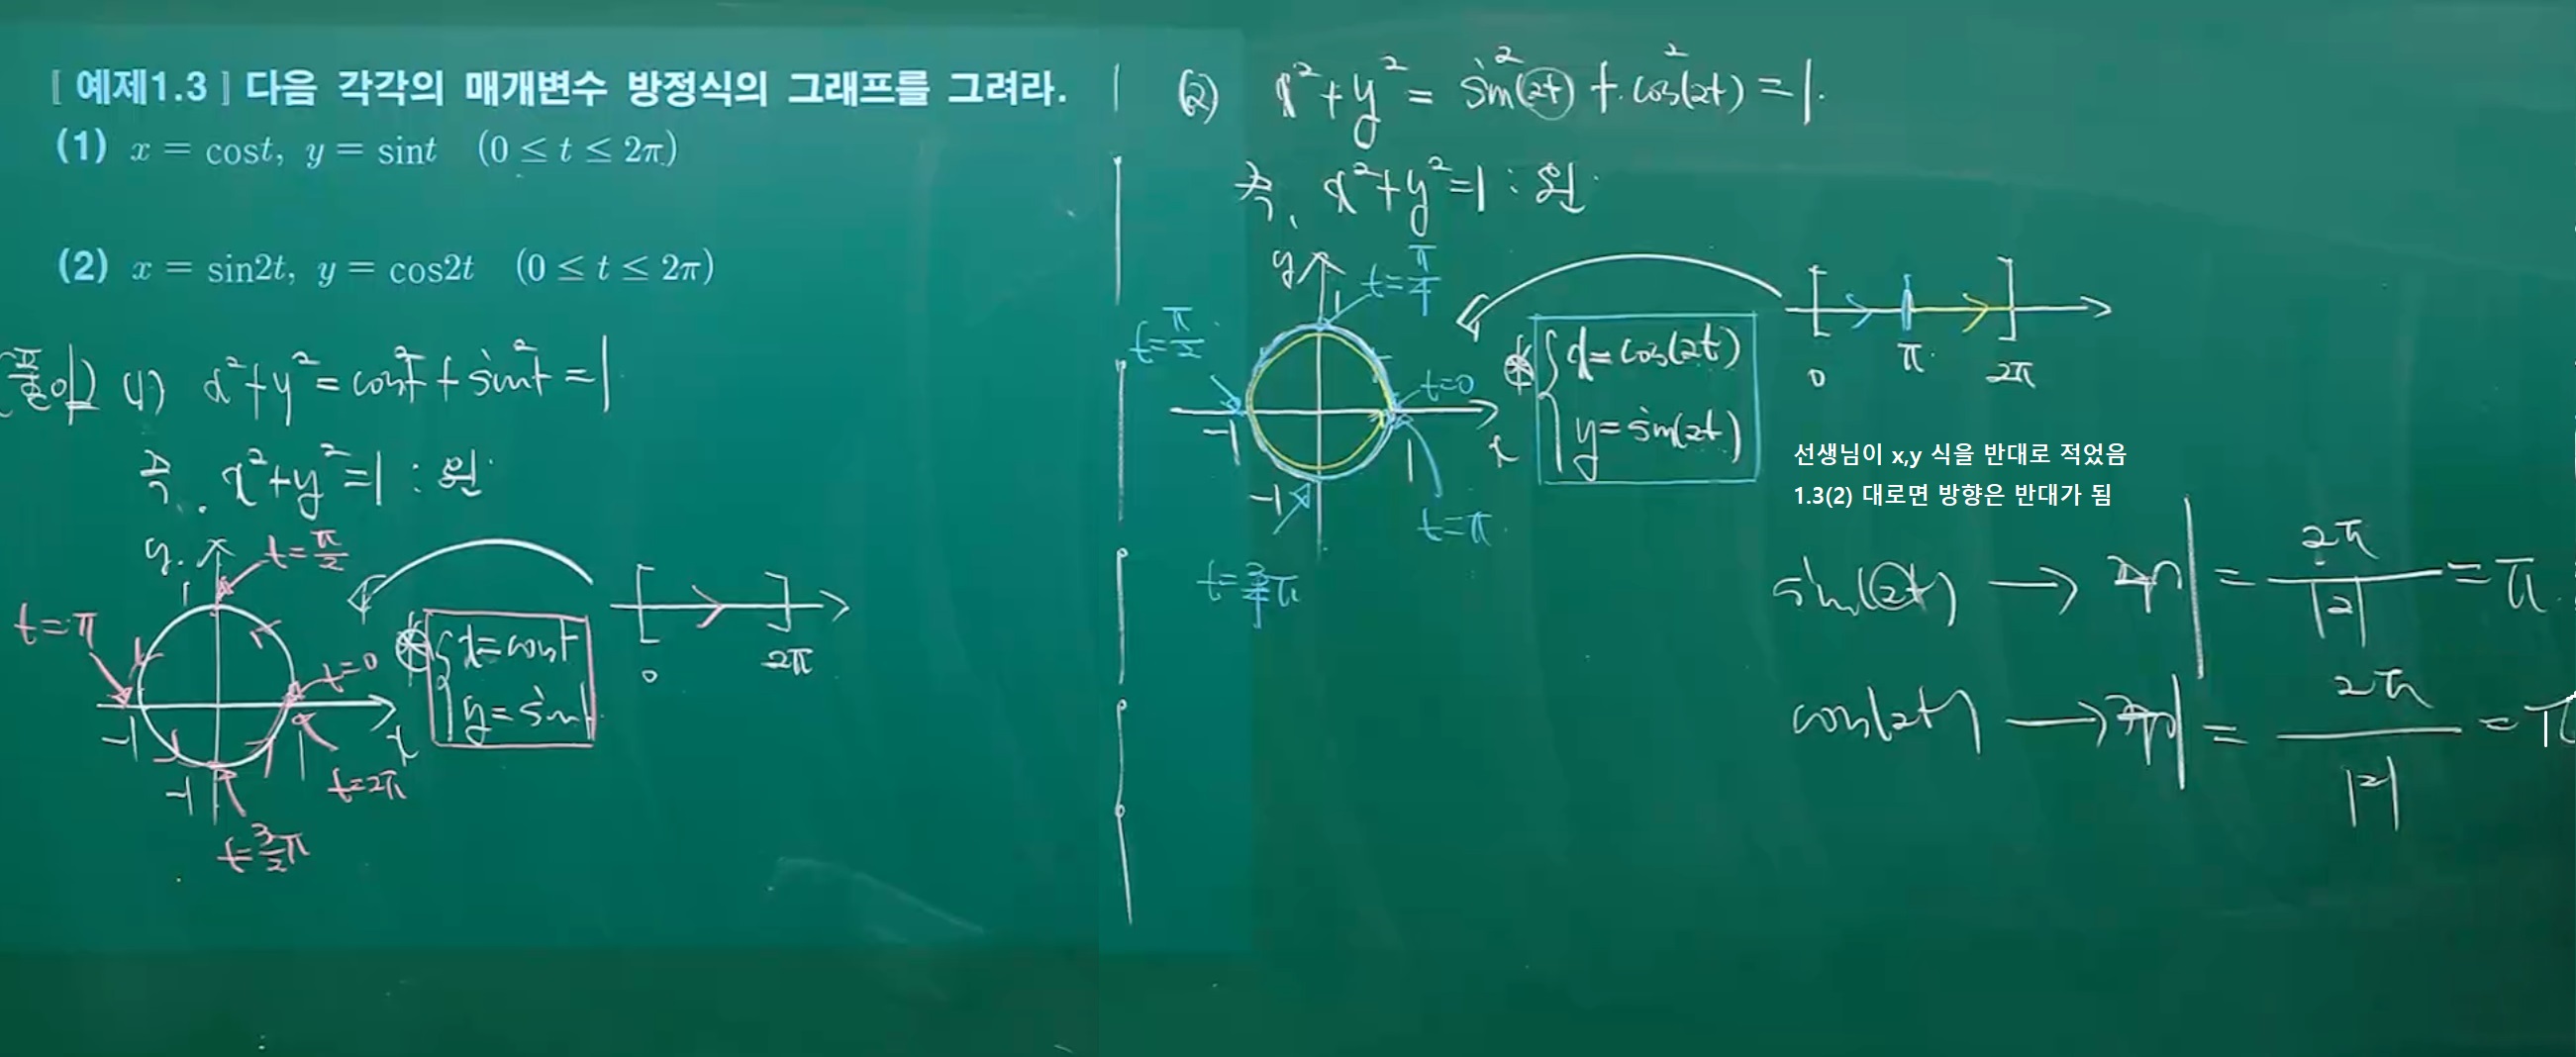 [예제1.3] 다음 각각의 매개변수 방정식의 그래프를 그려라.
(1) x = cost, y = sint (0 ≤ t ≤ 2π)
(2) x = sin2t, y = cos2t (0 ≤ t ≤ 2π)
풀이) (1) x²+y² = cos²t + sin²t = 1
즉, x²+y²=1 : 원
y
t=π/2
1
t=π
t=0
-1
1
x
-1
t=2π
t=3/2π
x=cost
y=sint
0
2π
(2) x²+y² = sin²(2t) + cos²(2t) = 1.
즉, x²+y²=1 : 원
y
t=π/4
1
t=π/2
t=0
-1
1
x
-1
t=π
t=3/4π
x=cos(2t)
y=sin(2t)
0
π
2π
선생님이 x,y 식을 반대로 적었음
1.3(2) 대로면 방향은 반대가 됨
sin(2t) → 주기 = 2π/|2| = π
cos(2t) → 주기 = 2π/|2| = π